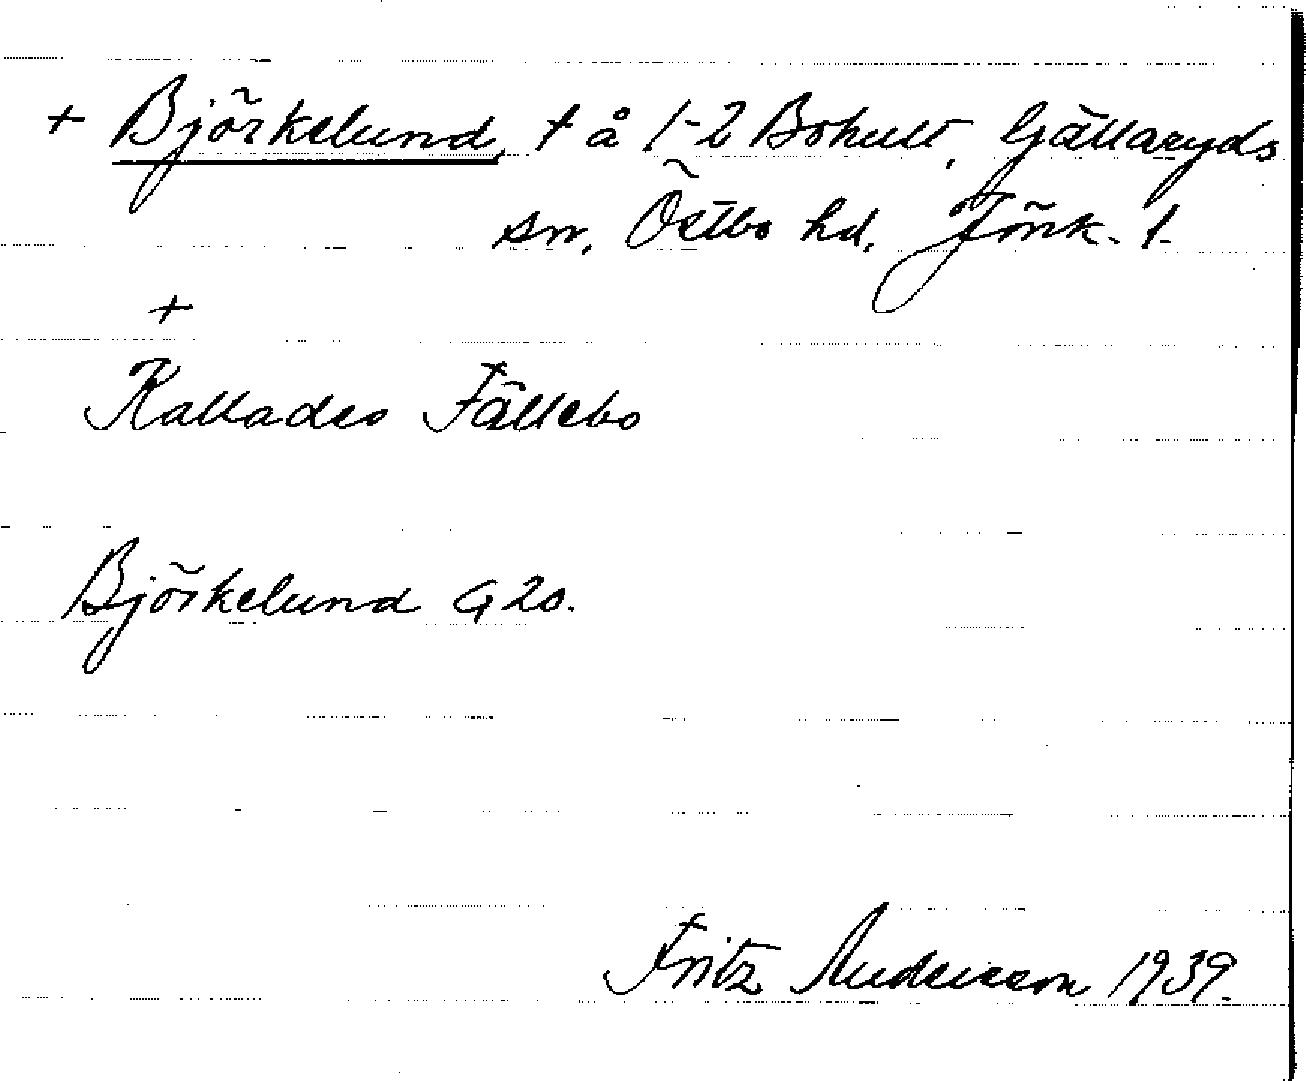 + Björkelund, t å 1-2 Bohult, Gällaryds
sn, Östbo hd, Jönk. l.
+
Kallades Fällebo
Björkelund G 20.
Fritz Andersson 1939.